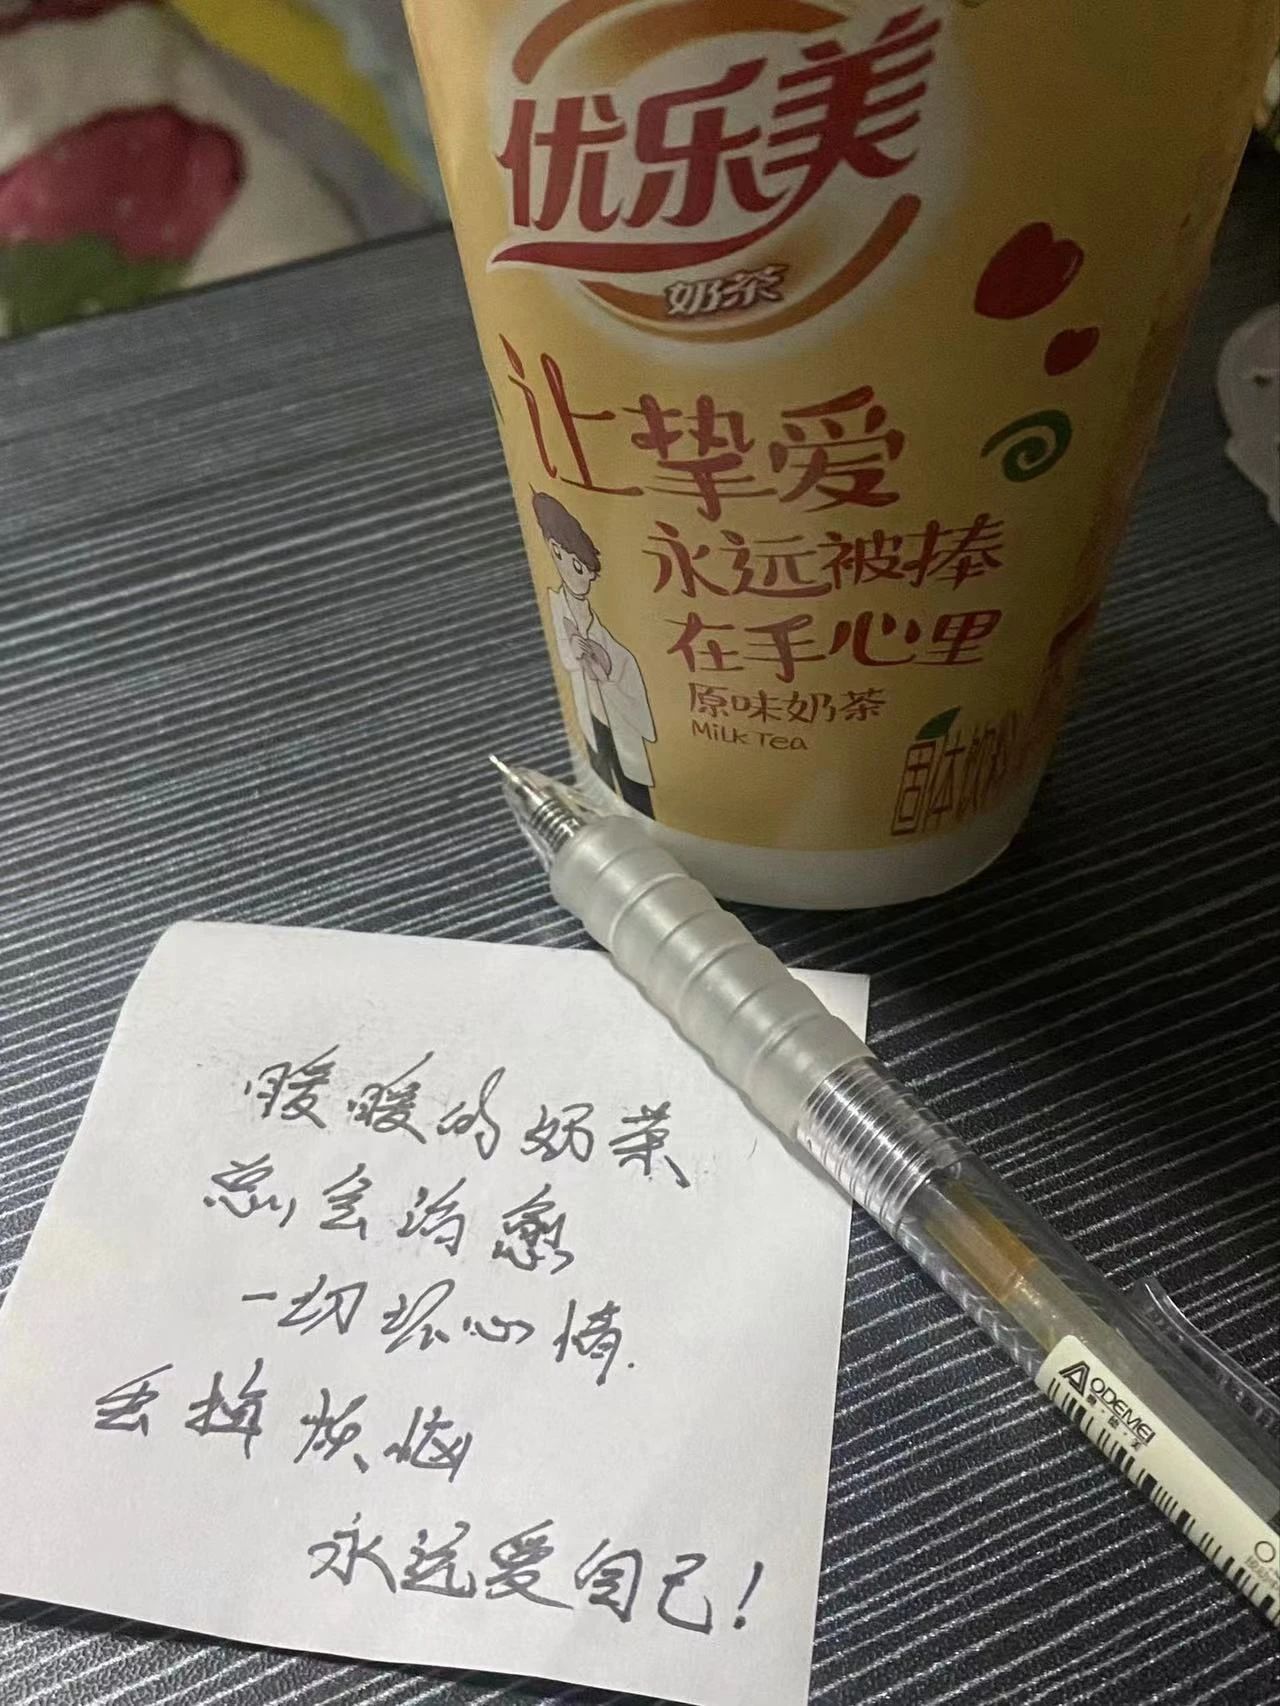 优乐美
奶茶
让挚爱
永远被捧
在手心里
原味奶茶
Milk Tea
固体饮料
暖暖的奶茶
总会治愈
一切坏心情.
丢掉烦恼
永远爱自己!
AODEMEI
奥·德·美